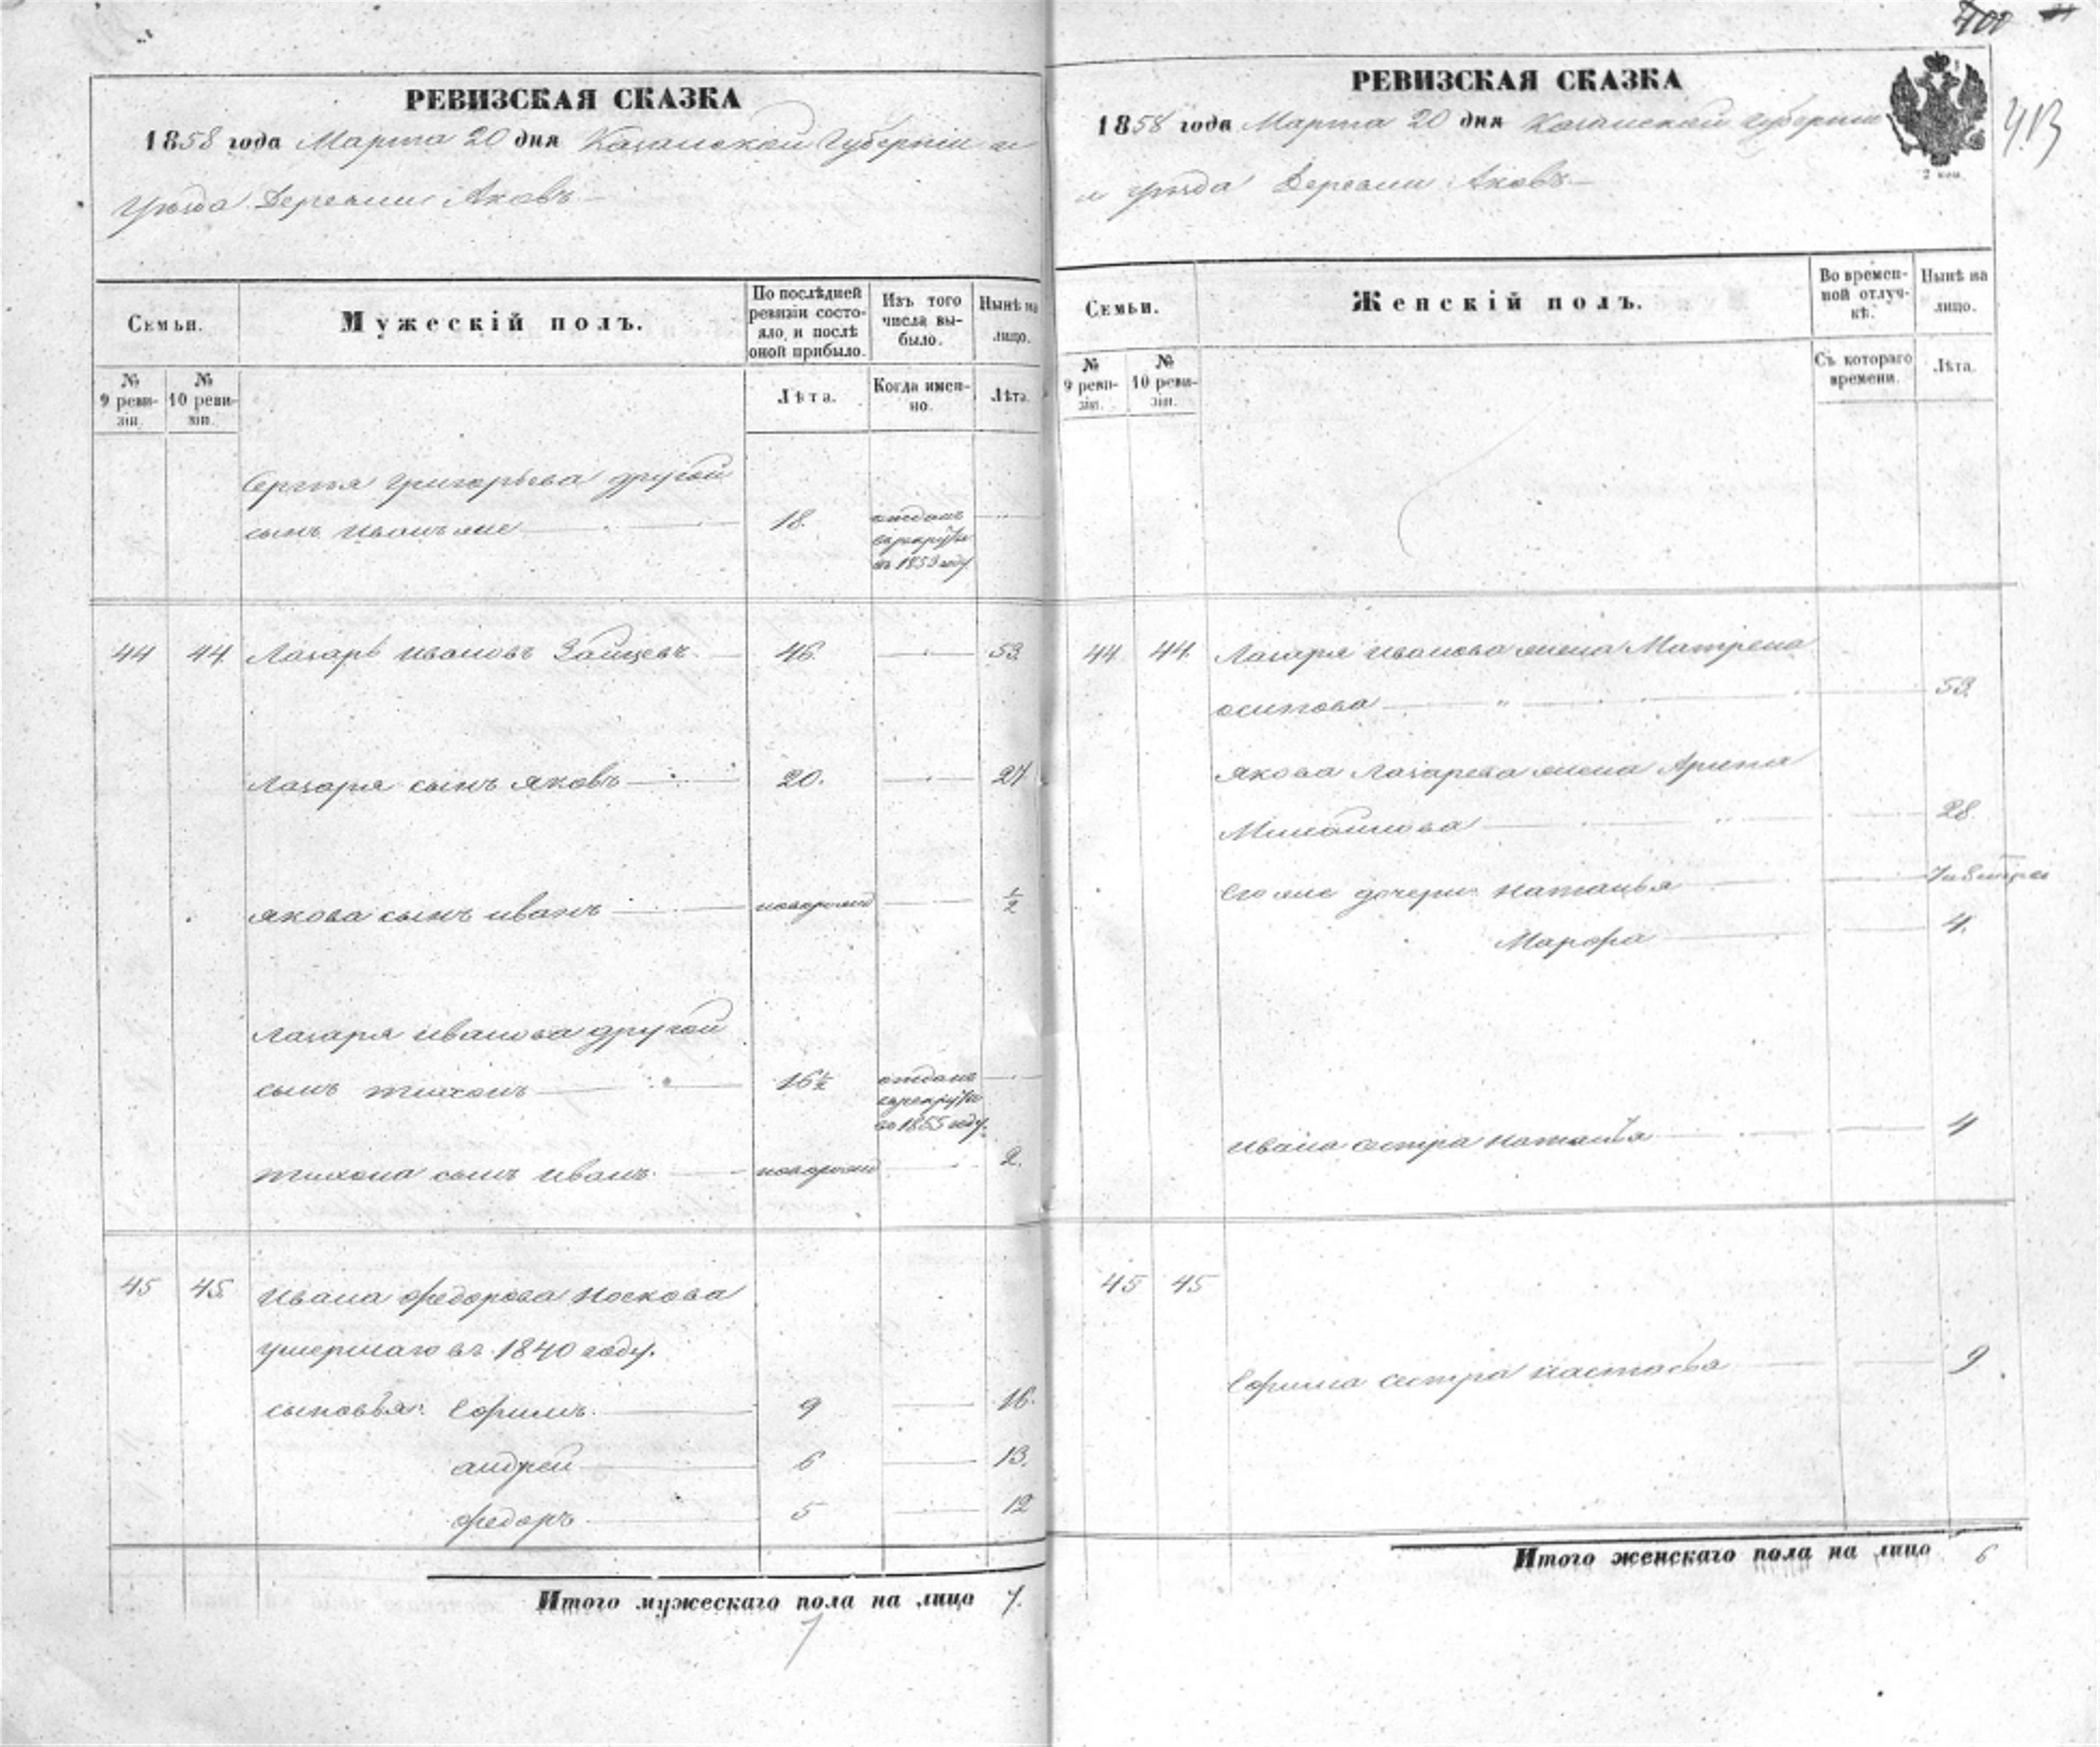 РЕВИЗСКАЯ СКАЗКА
1858 года Марта 20 дня Казанской Губернiи и
Уѣзда Деревни Аковъ
Семьи.
Мужескiй полъ.
По послѣдней ревизiи состояло, и послѣ оной прибыло.
Изъ того числа выбыло.
Нынѣ на лицо.
№ 9 ревизiи.
№ 10 ревизiи.
Лѣта.
Когда именно.
Лѣта.
Сергѣя Григорьева другой
сынъ Иванъ же 18. отданъ
в рекруты
въ 1853 году
44 44. Лазарь Ивановъ Зайцевъ. 46. 53.
Лазаря сынъ Яковъ 20. 27.
Якова сынъ Иванъ новорожд 1/2
Лазаря Иванова другой
сынъ Тихонъ 16½ отданъ
в рекруты
въ 1855 году.
Тихона сынъ Иванъ. новорожд 2.
45 45. Ивана Федорова Носкова
умершаго въ 1840 году.
сыновья: Ефимъ. 9 16.
Андрей 6 13.
Федоръ 5 12
Итого мужескаго пола на лицо 7.
7
413
РЕВИЗСКАЯ СКАЗКА
2 коп.
1858 года Марта 20 дня Казанской Губернiи
и Уѣзда Деревни Аковъ
Семьи.
Женскiй полъ.
Во временной отлучкѣ.
Нынѣ на лицо.
№ 9 ревизiи.
№ 10 ревизiи.
Съ котораго времени.
Лѣта.
44. 44. Лазаря Иванова жена Матрена
Осипова 53.
Якова Лазарева жена Арина
28.
Его же дочери: Наталья
Марфа 4.
Ивана сестра Наталья 4
45 45
Ефима сестра Настасья 9
Итого женскаго пола на лицо 6